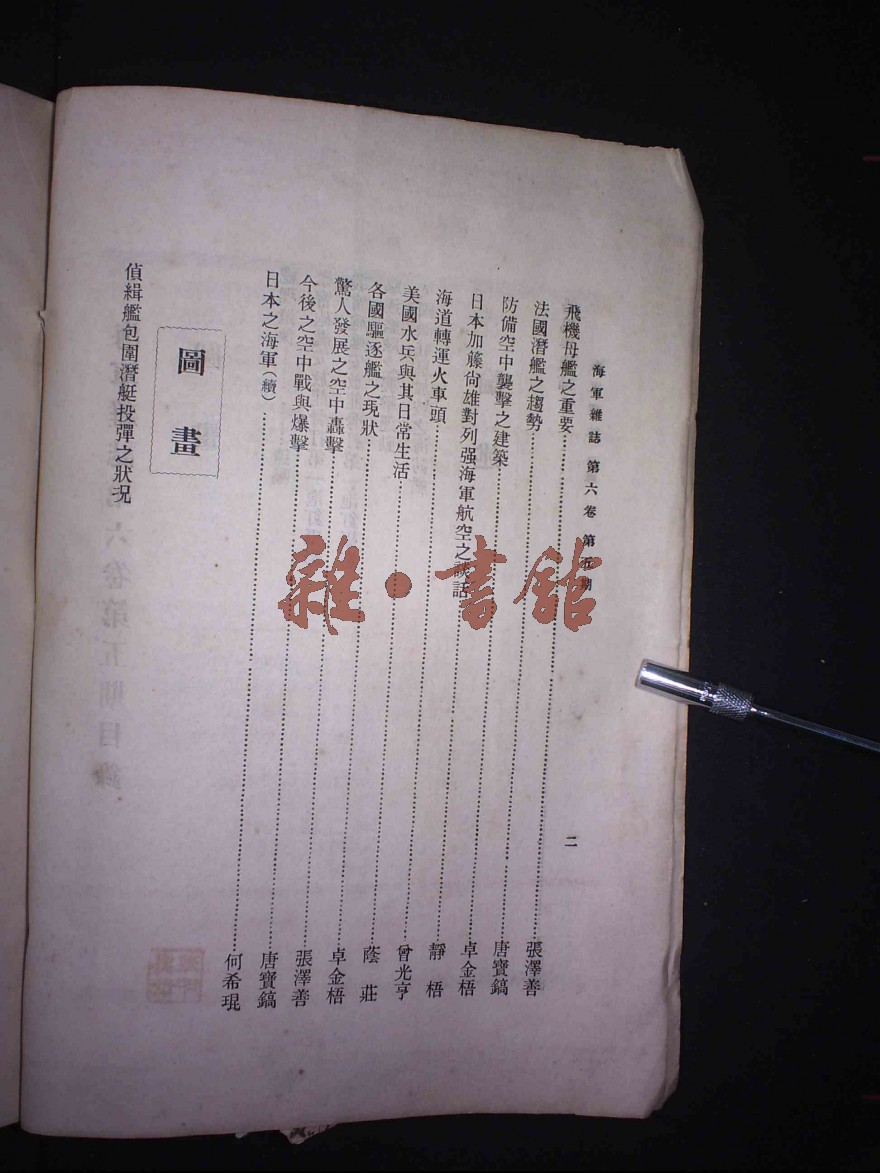 海軍雜誌 第六卷 第五期 二
飛機母艦之重要……張澤善
法國潛艦之趨勢……唐寶鎬
防備空中襲擊之建築……卓金梧
日本加籐尙雄對列强海軍航空之談話……靜梧
海道轉運火車頭……曾光亨
美國水兵與其日常生活……蔭莊
各國驅逐艦之現狀……卓金梧
驚人發展之空中轟擊……張澤善
今後之空中戰與爆擊……唐寶鎬
日本之海軍(續)……何希琨
圖畫
偵緝艦包圍潛艇投彈之狀況
雜·書館